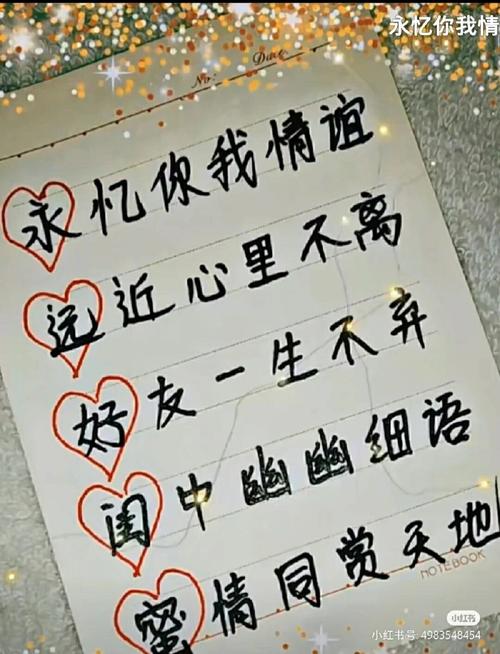 永忆你我情
No:
Date
永忆你我情谊
远近心里不离
好友一生不弃
闺中幽幽细语
蜜情同赏天地
NOTEBOOK
小红书
小红书号 4983548454